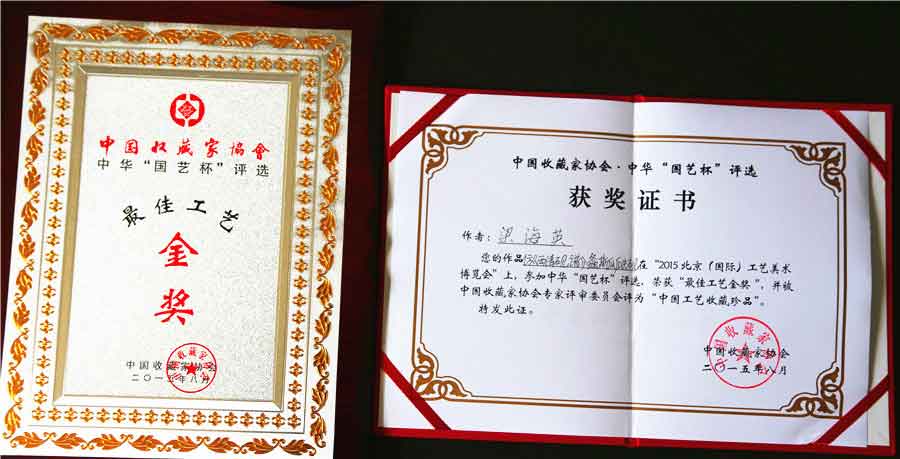 中国收藏家協會
中华“国艺杯”评选
最佳工艺
金奖
中国收藏家协会
二〇一五年八月
中国收藏家协会·中华“国艺杯”评选
获奖证书
作者：梁海英
您的作品 在“2015北京（国际）工艺美术
博览会”上，参加中华“国艺杯”评选，荣获“最佳工艺金奖”，并被
中国收藏家协会专家评审委员会评为“中国工艺收藏珍品”。
特发此证。
中国收藏家协会
二〇一五年八月